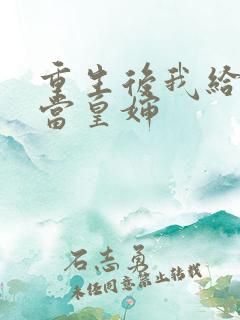 重生後我給
當皇嬸
石志勇
未经同意禁止转载